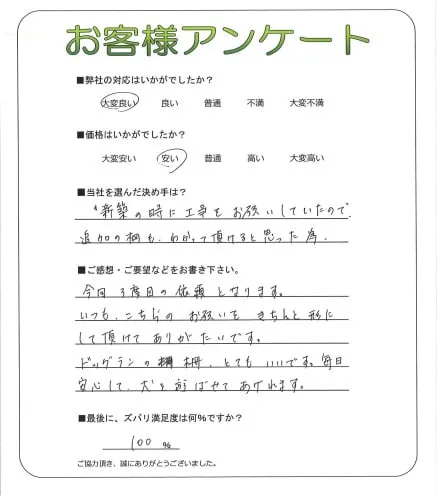 お客様アンケート
■弊社の対応はいかがでしたか？
大変良い 良い 普通 不満 大変不満
■価格はいかがでしたか？
大変安い 安い 普通 高い 大変高い
■当社を選んだ決め手は？
新築の時に工事をお願いしていたので、
追加の柵も、わかって頂けると思った為。
■ご感想・ご要望などをお書き下さい。
今回3度目の依頼となります。
いつも、こちらのお願いをきちんと形に
して頂けてありがたいです。
ドッグランの柵、とてもいいです。毎日
安心して、犬を遊ばせてあげれます。
■最後に、ズバリ満足度は何%ですか？
100 %
ご協力頂き、誠にありがとうございました。